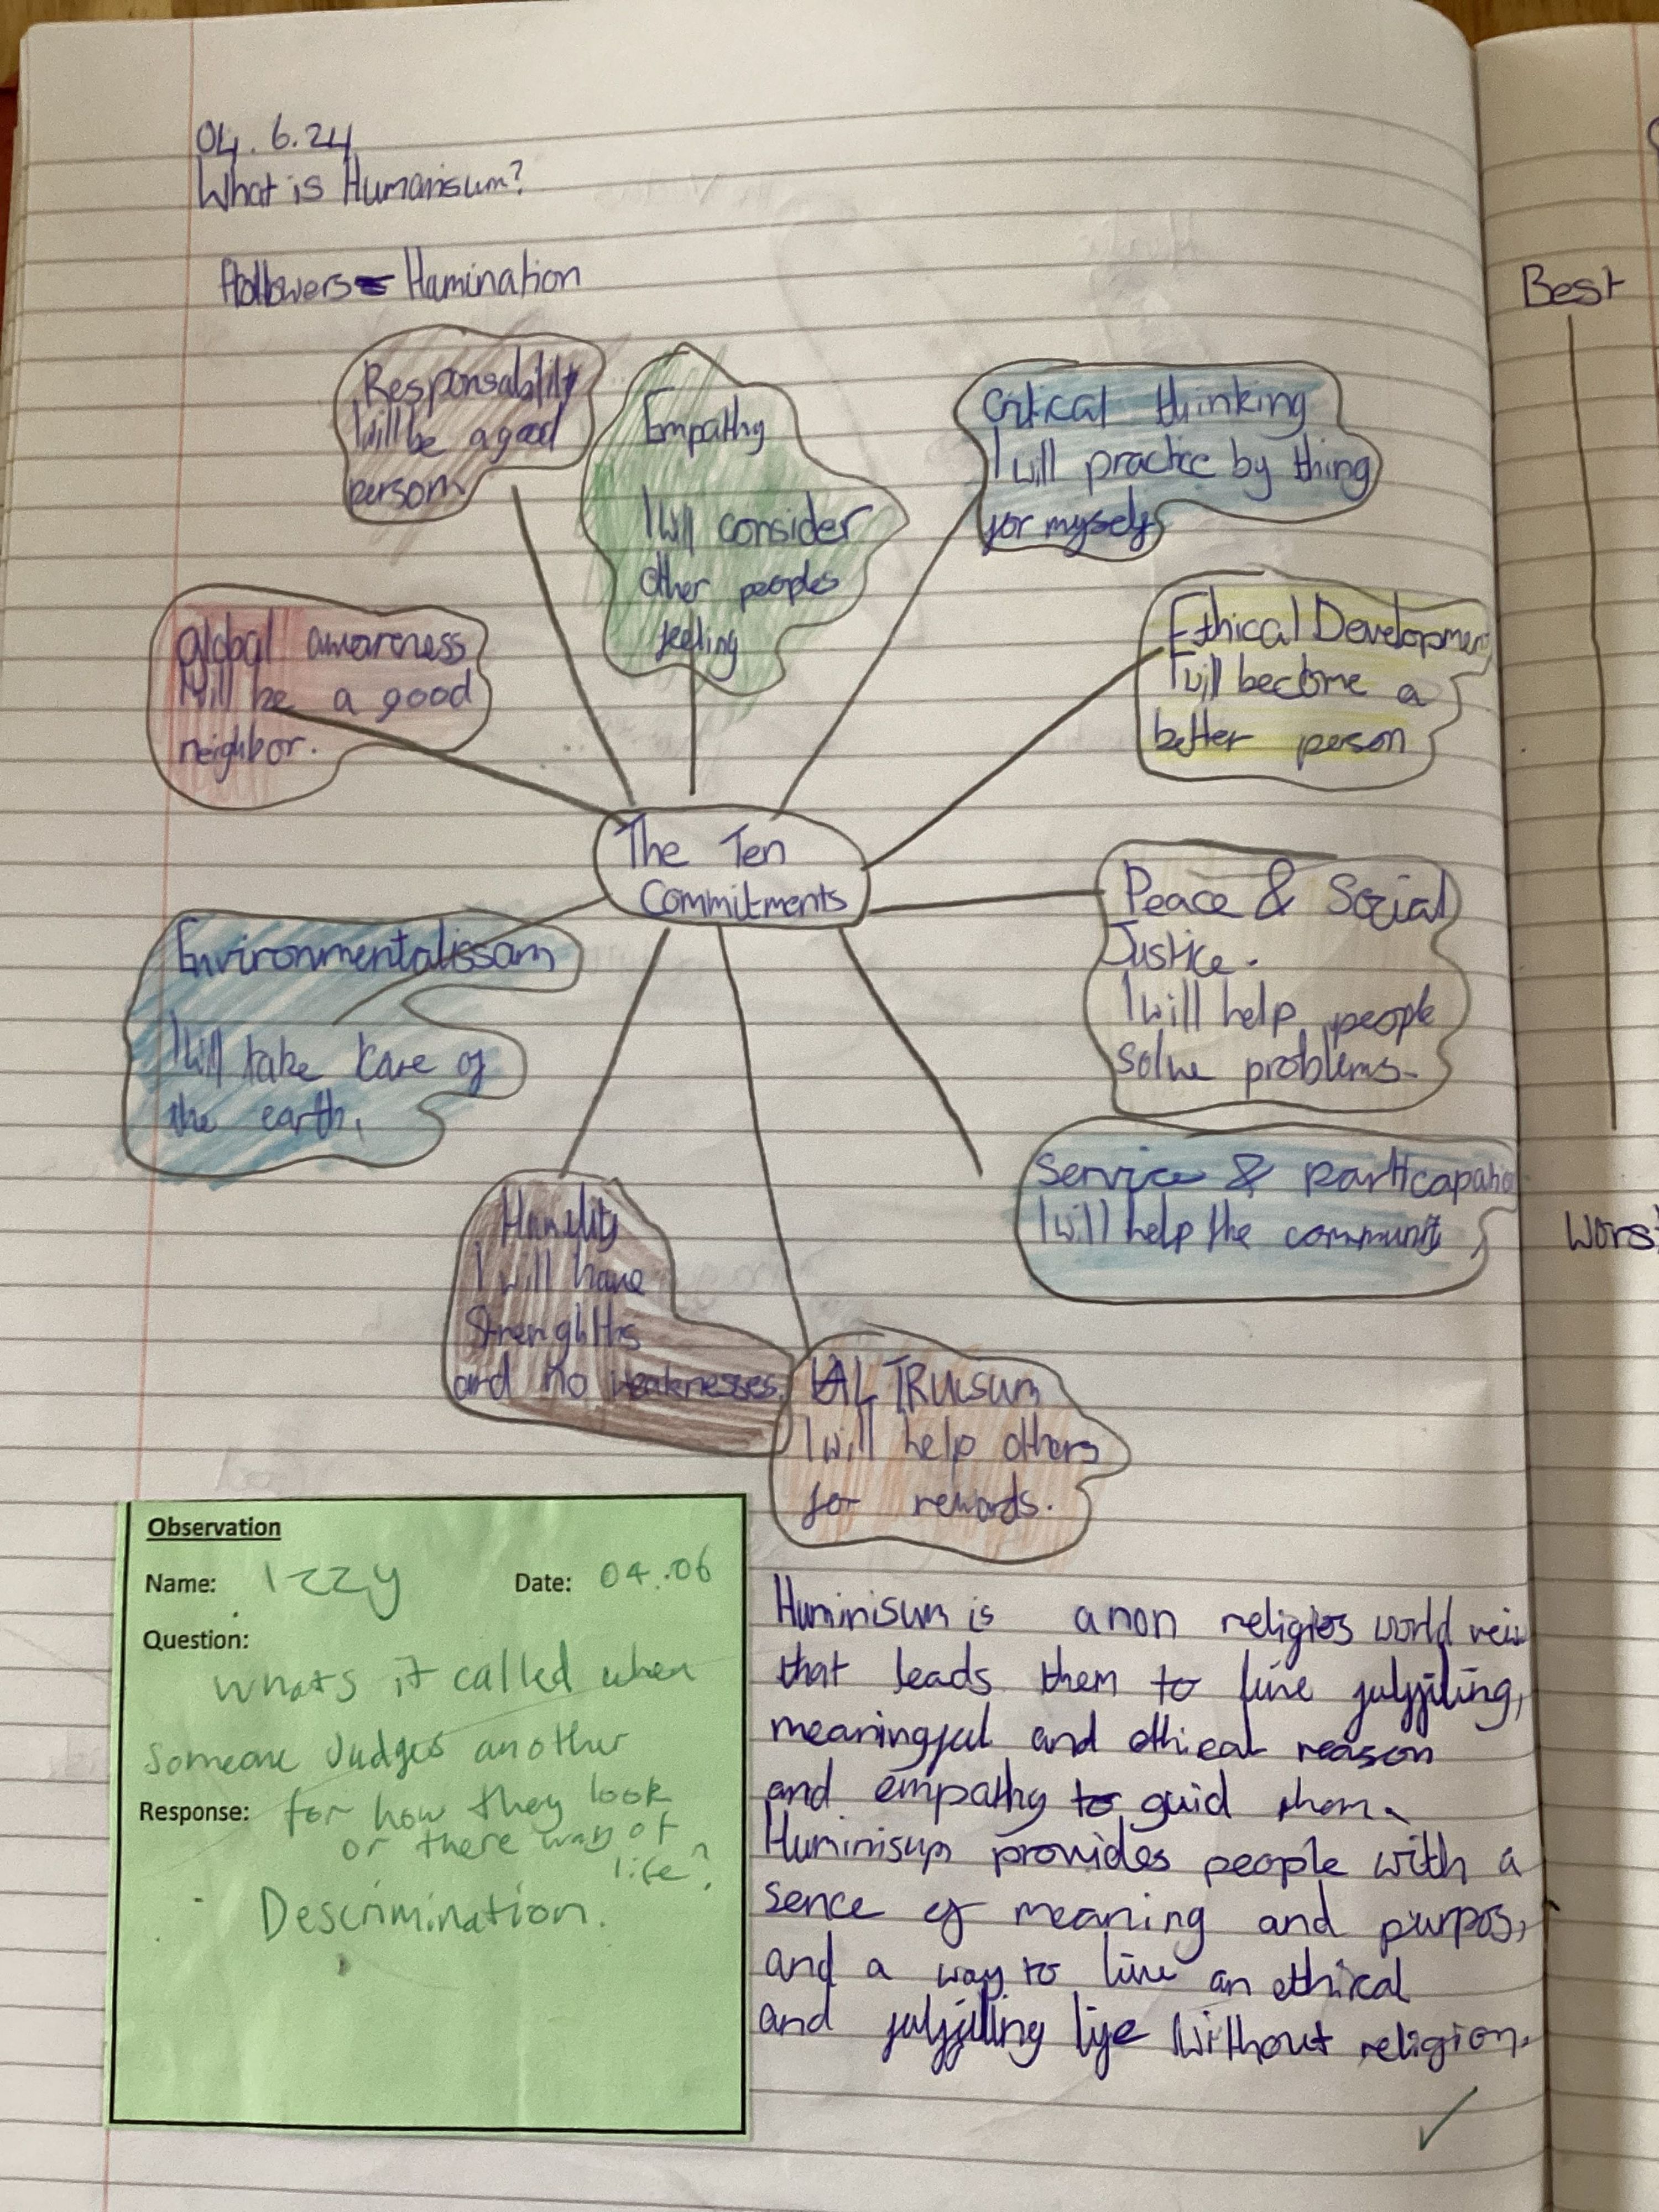 04.6.24
What is Humanisum?
Followers = Humination
Responsability
I will be a good
person
Empathy
I will consider
other peoples
feeling
Critical thinking
I will practice by thing
for myself
global awareness
I will be a good
neighbor.
Ethical Development
I will become a
better person
The Ten
Commitments
Peace & Social
Justice.
I will help people
solve problems.
Environmentalissam
I will take care of
the earth.
Service & particapation
I will help the community
Humility
I will have
Strenghths
and no weaknesses.
ALTRUISUM
I will help others
for rewards.
Observation
Name: Izzy Date: 04.06
Question:
whats it called when
someone Judges another
Response: for how they look
or there way of
life?
Descrimination.
Huminisum is a non religios world veiw
that leads them to live fulffiling,
meaningful and ethical reason
and empathy to guid them.
Huminisum provides people with a
sence of meaning and purpos,
and a way to live an ethical
and fulffilling life without religion.
Best
Worst